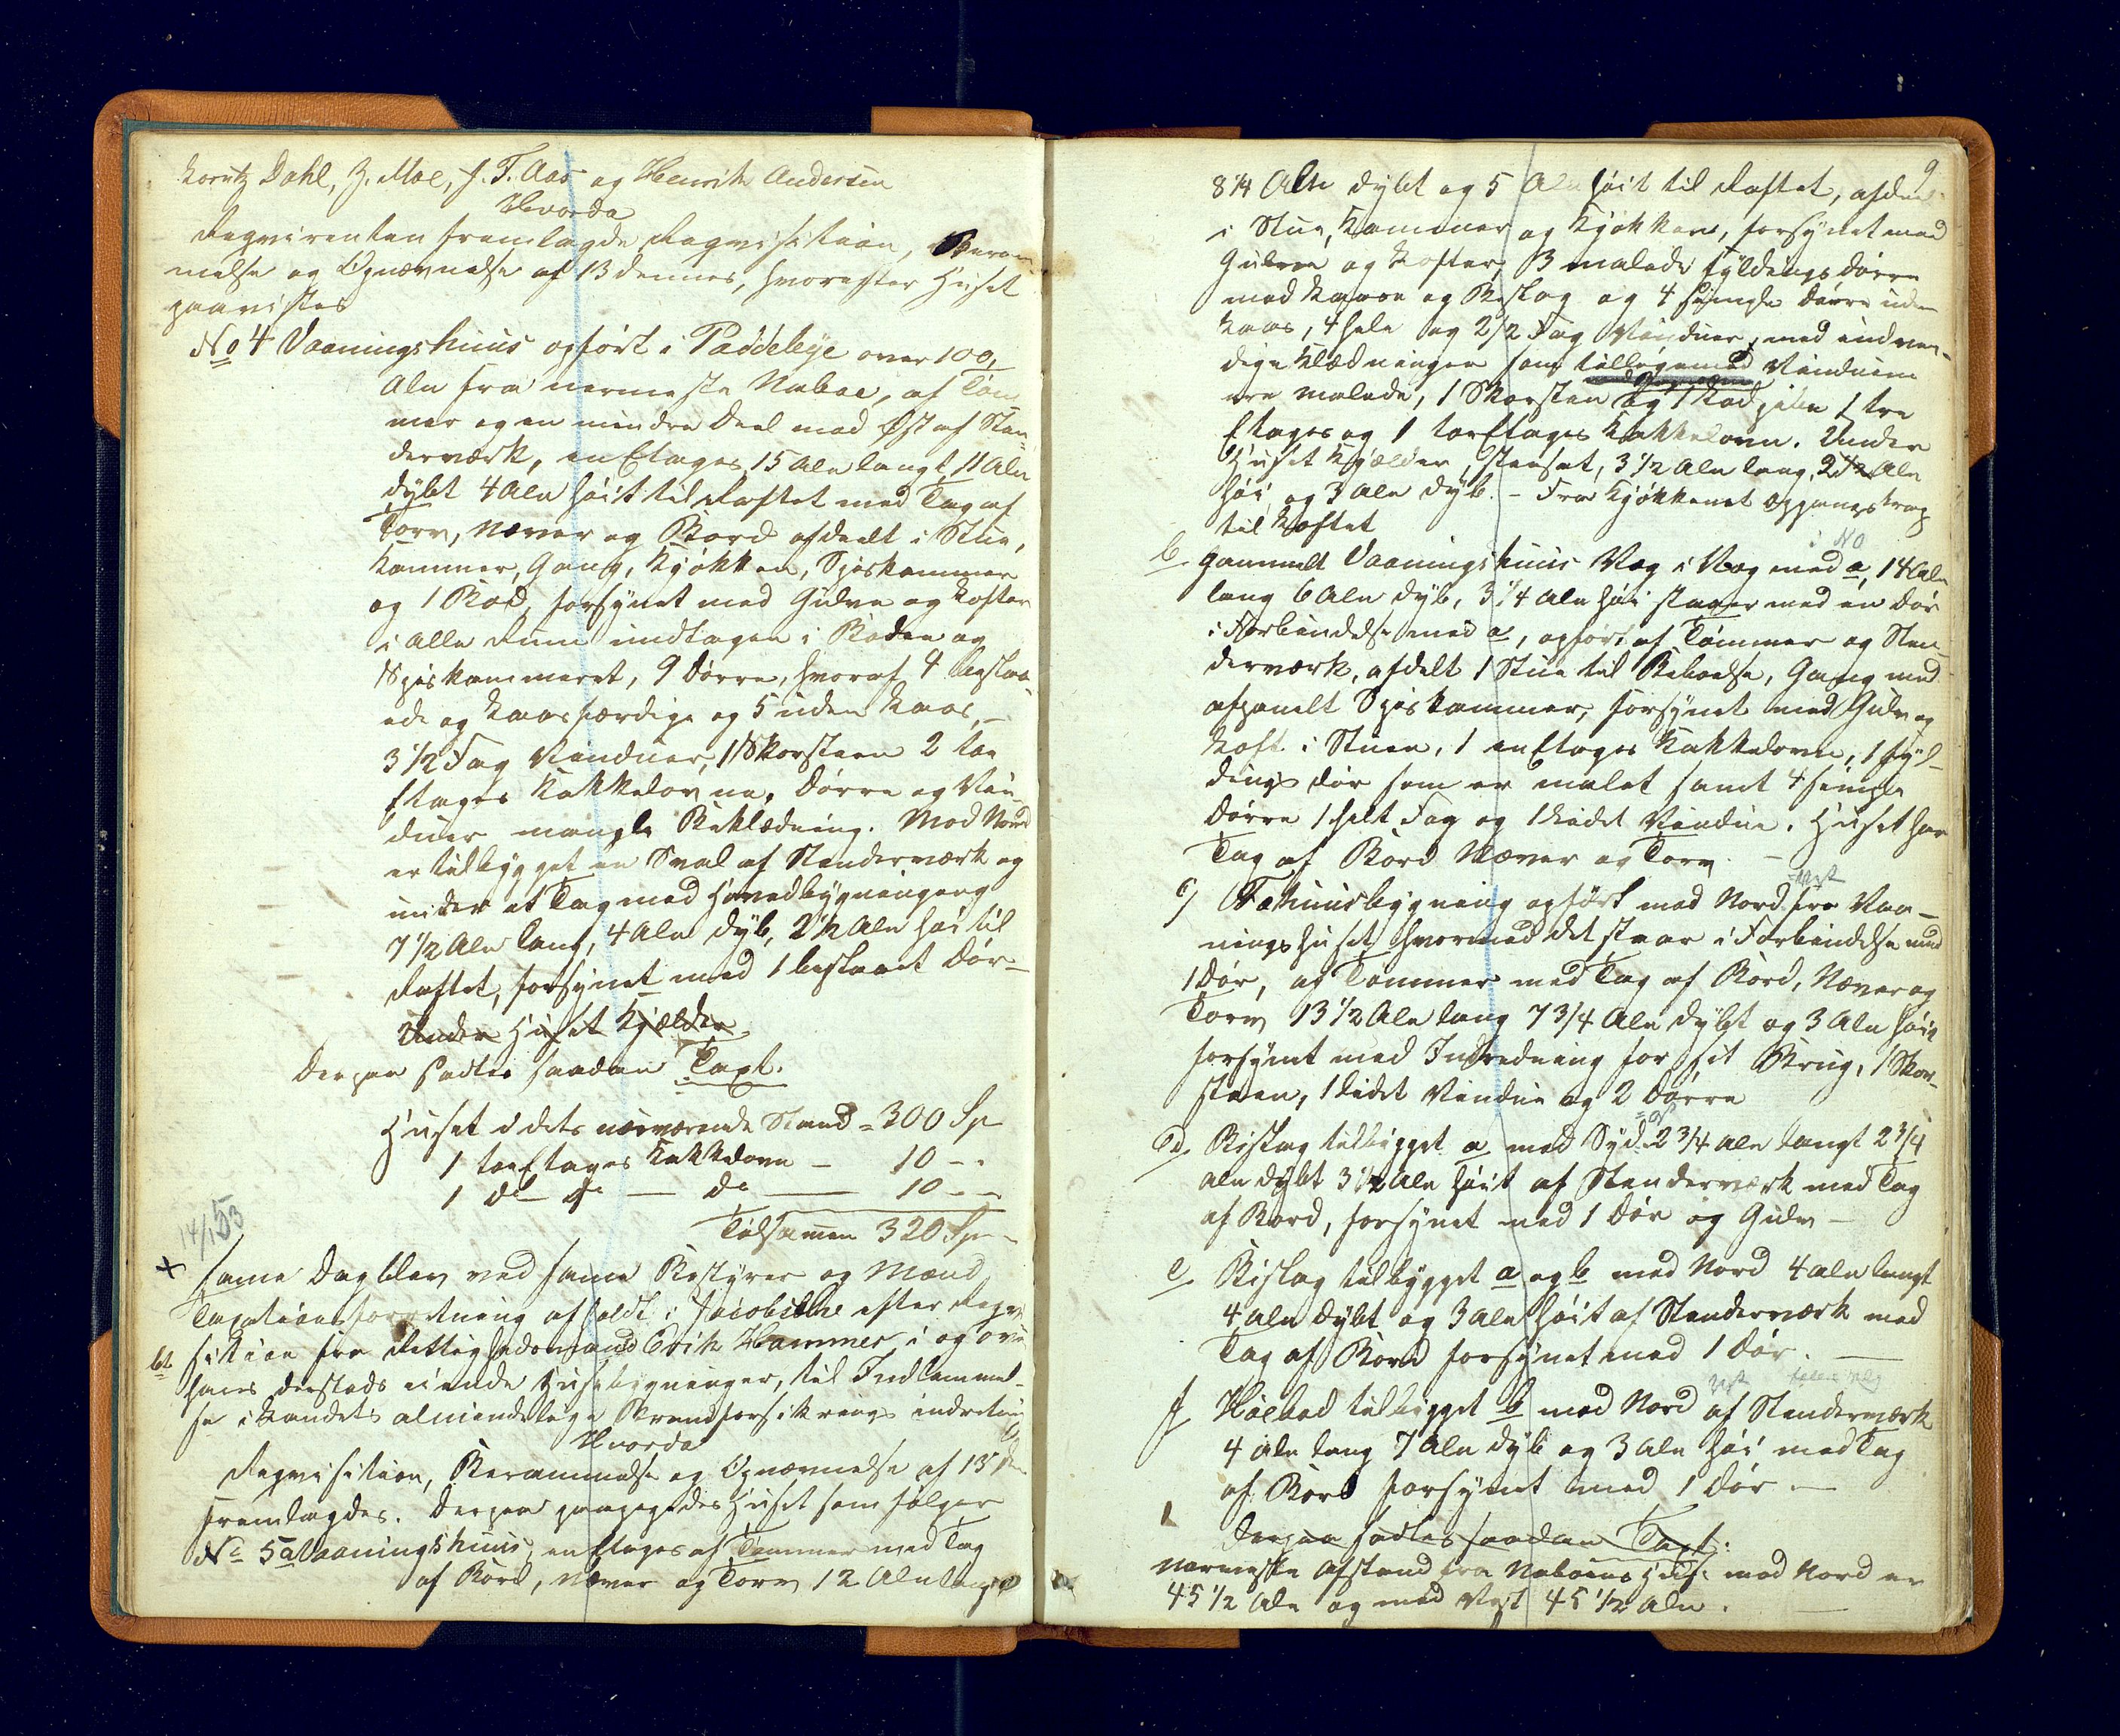 Loretz Dahl, Z. Moe, J. T. Aas og Henrik Andersen
Hvorda
Reqvirenten fremlagde Reqvisition, Beram-
melse og Opnævnelse af 13 dennes, hvorefter Huset
paavistes
No 4 Vaaningshuus opført i Paddebye over 100,
Aln fra nærmeste Naboe, af Tøm
mer og en mindre Deel mod Øst af Sten-
derværk, en Etages, 15 Aln langt, 11 Aln
dybt 4 Aln høit til Raftet med Tag af
Torv, Næver og Bord afdeelt i Stue,
Kammer, Gang, Kjøkken, Spiskammer
og 1 Bod, forsynet med Gulve og Lofter
i alle Rum undtagen i Boden og
Spiskammeret, 9 Dørre, hvoraf 4 beslaa-
ede og Laasfærdige og 5 uden Laas,
3 1/2 Fag Vinduer, 1 Skorsteen 2 toe
Etages Kakkelovne. Dørre og Vin-
duer mangle Beklædning. Mod Nord
er tilbygget en Sval af Stenderværk og
under et Tag med Hovedbygningen
7 1/2 Aln lang, 4 Aln dyb, 2 1/2 Aln høi til
Raftet, forsynet med 1 beslaaet Dør-
Under Huset Kjælder.
Derpaa sattes saadan Taxt.
Huset i dets nærværende Stand = 300 Sp
1 toe Etages Kakkelovn - 10 - -
1 do do - do - 10 - -
Tilsamen 320 Sp -
14/1 53
+ Same Dag blev ved same Bestyrer og Mænd
Taxationsforretning afholdt i Jacobselv efter Reqvi
sition fra Rettighedsmand Erik Hammer, i og over
hans dersteds eiende Huusbygninger, til Indlemmel-
se i Landets almindelige Brandforsikrings indretning
Hvorda
Reqvisition, Berammelse og Opnævnelse af 13 ds
fremlagdes. Derpaa paapegedes Huset som følger
No 5 a Vaaningshuus, en Etages af Tømmer med Tag
af Bord, Næver og Torv 12 Aln langt
9
8 1/4 Aln dybt og 5 Aln høit til Raftet, afdeelt
i Stue, Kammer og Kjøkken, forsynet med
Gulve og Lofter, 3 malede Fyldingsdørre
med Laase og Beslag og 4 simple Dørre uden
Laas, 4 hele og 2 1/2 Fag Vinduer, med indven-
dige Klædninger som tilligemed Vinduerne
ere malede, 1 Skorsteen og 1 1 tre
Etages og 1 toe Etages Kakkelovn. Under
Huset Kjælder, steensat, 3 1/2 Aln lang, 2 1/2 Aln
høi og 3 Aln dyb. - Fra Kjøkkenet Opgangstrap
til Loftet
NO
b. gammelt Vaaningshuus Væg i Væg med a, 14 Aln
lang 6 Aln dyb, 3 1/4 Aln høi staaer med en Dør
i Forbindelse med a, opført af Tømmer og Sten-
derværk, afdelt 1 Stue til Beboelse, Gang med
afpanelt Spiskammer, forsynet med Gulv og
Loft i Stuen, 1 en Etages Kakkelovn, 1 Fyl-
dings dør som er malet samt 4 simple
Dørre 1 helt Fag og 1 lidet Vindue. Huset har
Tag af Bord Næver og Torv. -
vest
c) Fæhuusbygning opført mod Nord fra Vaa-
ningshuset hvormed det staar i Forbindelse med
1 Dør, af Tømmer med Tag af Bord, Næver og
Torv, 13 1/2 Aln lang 7 3/4 Aln dybt og 3 Aln høit
forsynt med Indredning for sit Brug, 1 Skor-
steen, 1 lidet Vindue og 2 Dørre
d. Bislag tilbygget a mod Syd 2 3/4 Aln langt 2 3/4
Aln dybt 3 1/2 Aln høit af Stenderværk med Tag
af Bord, forsynet med 1 Dør og Gulv -
e Bislag tilbygget a og b mod Nord 4 Aln langt
4 Aln dybt og 3 Aln høit af Stenderværk med
Tag af Bord forsynet med 1 Dør. -
vest
f Høebod tilbygget b mod Nord af Stenderværk
4 Aln lang 7 Aln dyb og 3 Aln høi med Tag
af Bord forsynet med 1 Dør. -
Derpaa sattes saadan Taxt:
Nærmeste Afstand fra Naboens Huse mod Nord er
45 1/2 Aln og mod Vest 45 1/2 Aln. -